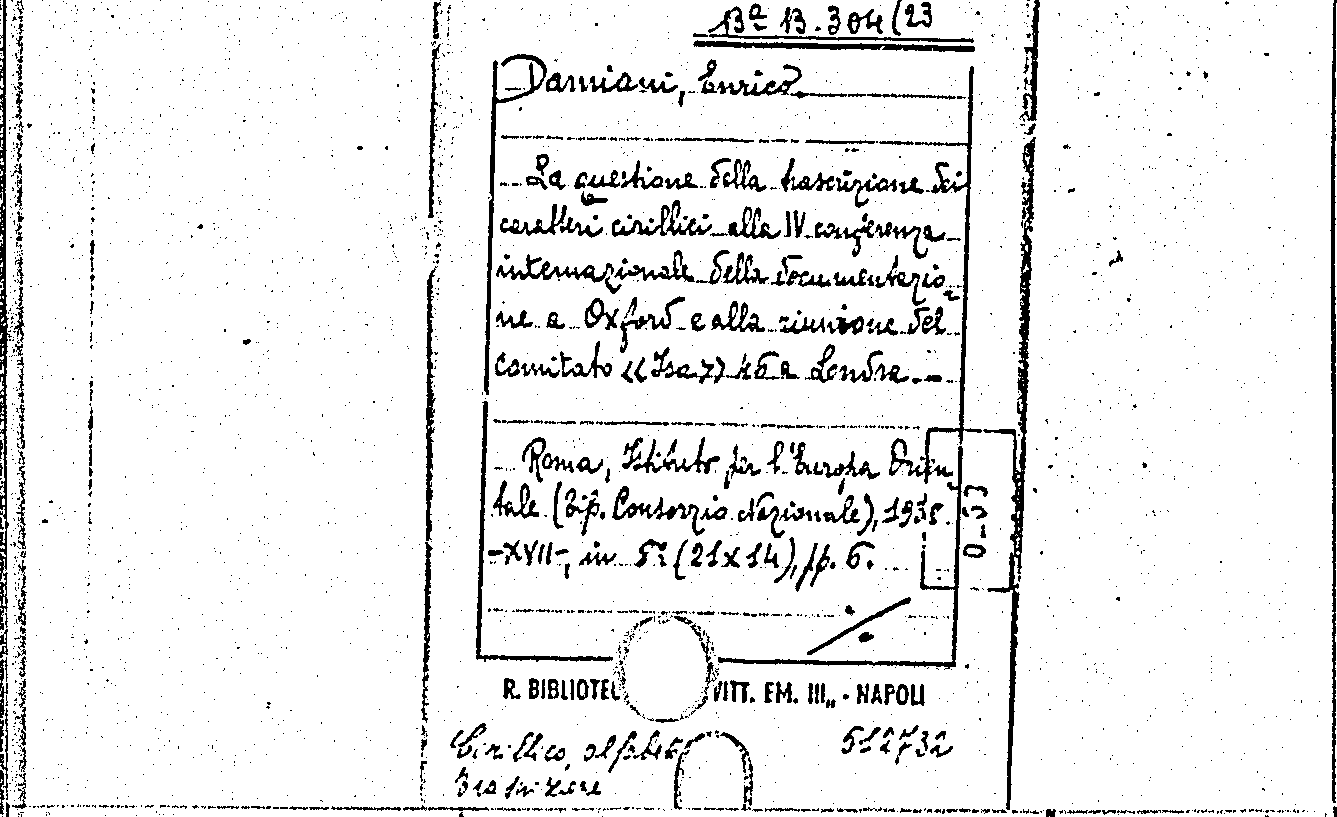 Bª 13.304(23
Damiani, Enrico.
La questione della trascrizione dei
caratteri cirillici alla IV conferenza
internazionale della documentazio-
ne a Oxford e alla riunione del
comitato «Isa» 46 a Londra.—
Roma, Istituto per l'Europa Orien-
tale (Tip. Consorzio Nazionale), 1938
-XVII-, in 8º (21x14), pp. 6.
0-53
./.
R. BIBLIOTEC VITT. EM. III„ - NAPOLI
Cirillico, alfabeto 512732
Trascrizione